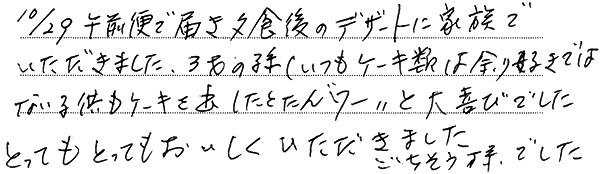 10/29 午前便で届き夕食後のデザートに家族で
いただきました。3才の孫(いつもケーキ類は余り好きでは
ない子供もケーキを出したとたん"ワー"と大喜びでした
とってもとってもおいしくいただきました
ごちそう様でした